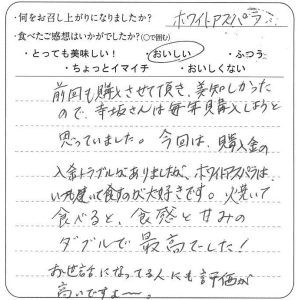 ・何をお召し上がりになりましたか? ホワイトアスパラ
・食べたご感想はいかがでしたか?(○で囲む)
・とっても美味しい! ・おいしい ・ふつう
・ちょっとイマイチ ・おいしくない
前回も購入させて頂き、美味しかった
ので、寺坂さんは毎年購入しようと
思っていました。今回は、購入金の
入金トラブルがありましたが、ホワイトアスパラは、
いつも焼いて食すのが大好きです。火焼いて
食べると、食感と甘みの
ダブルで最高でした!
お世話になってる人にも評価が
高いですよ〜。